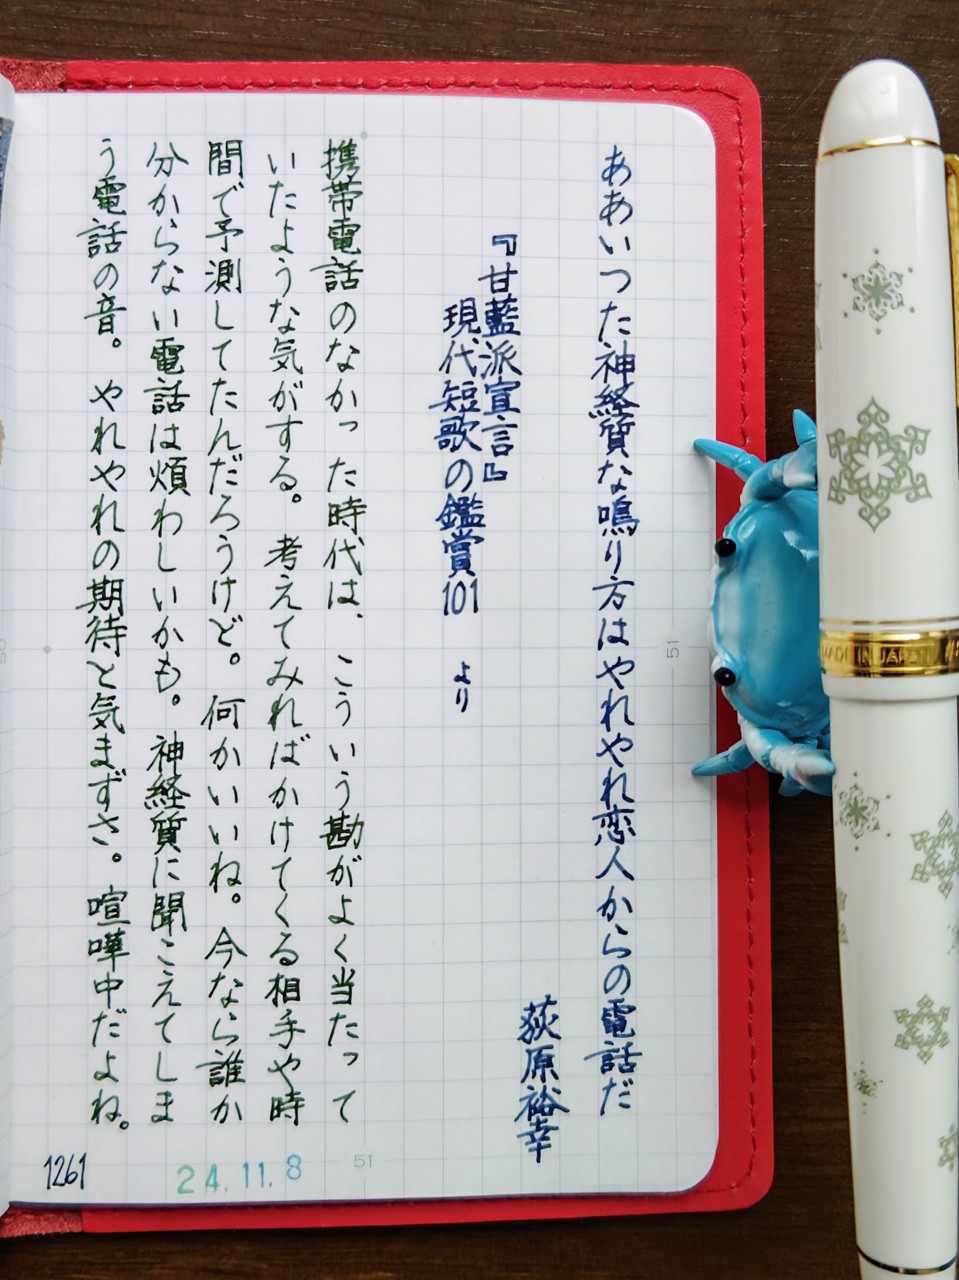 ああいつた神経質な鳴り方はやれやれ恋人からの電話だ
荻原裕幸
『甘藍派宣言』
現代短歌の鑑賞101 より
携帯電話のなかった時代は、こういう勘がよく当たって
いたような気がする。考えてみればかけてくる相手や時
間で予測してたんだろうけど。何かいいね。今なら誰か
分からない電話は煩わしいかも。神経質に聞こえてしま
う電話の音。やれやれの期待と気まずさ。喧嘩中だよね。
1261
24.11.8
51
51
MADE IN JAPAN